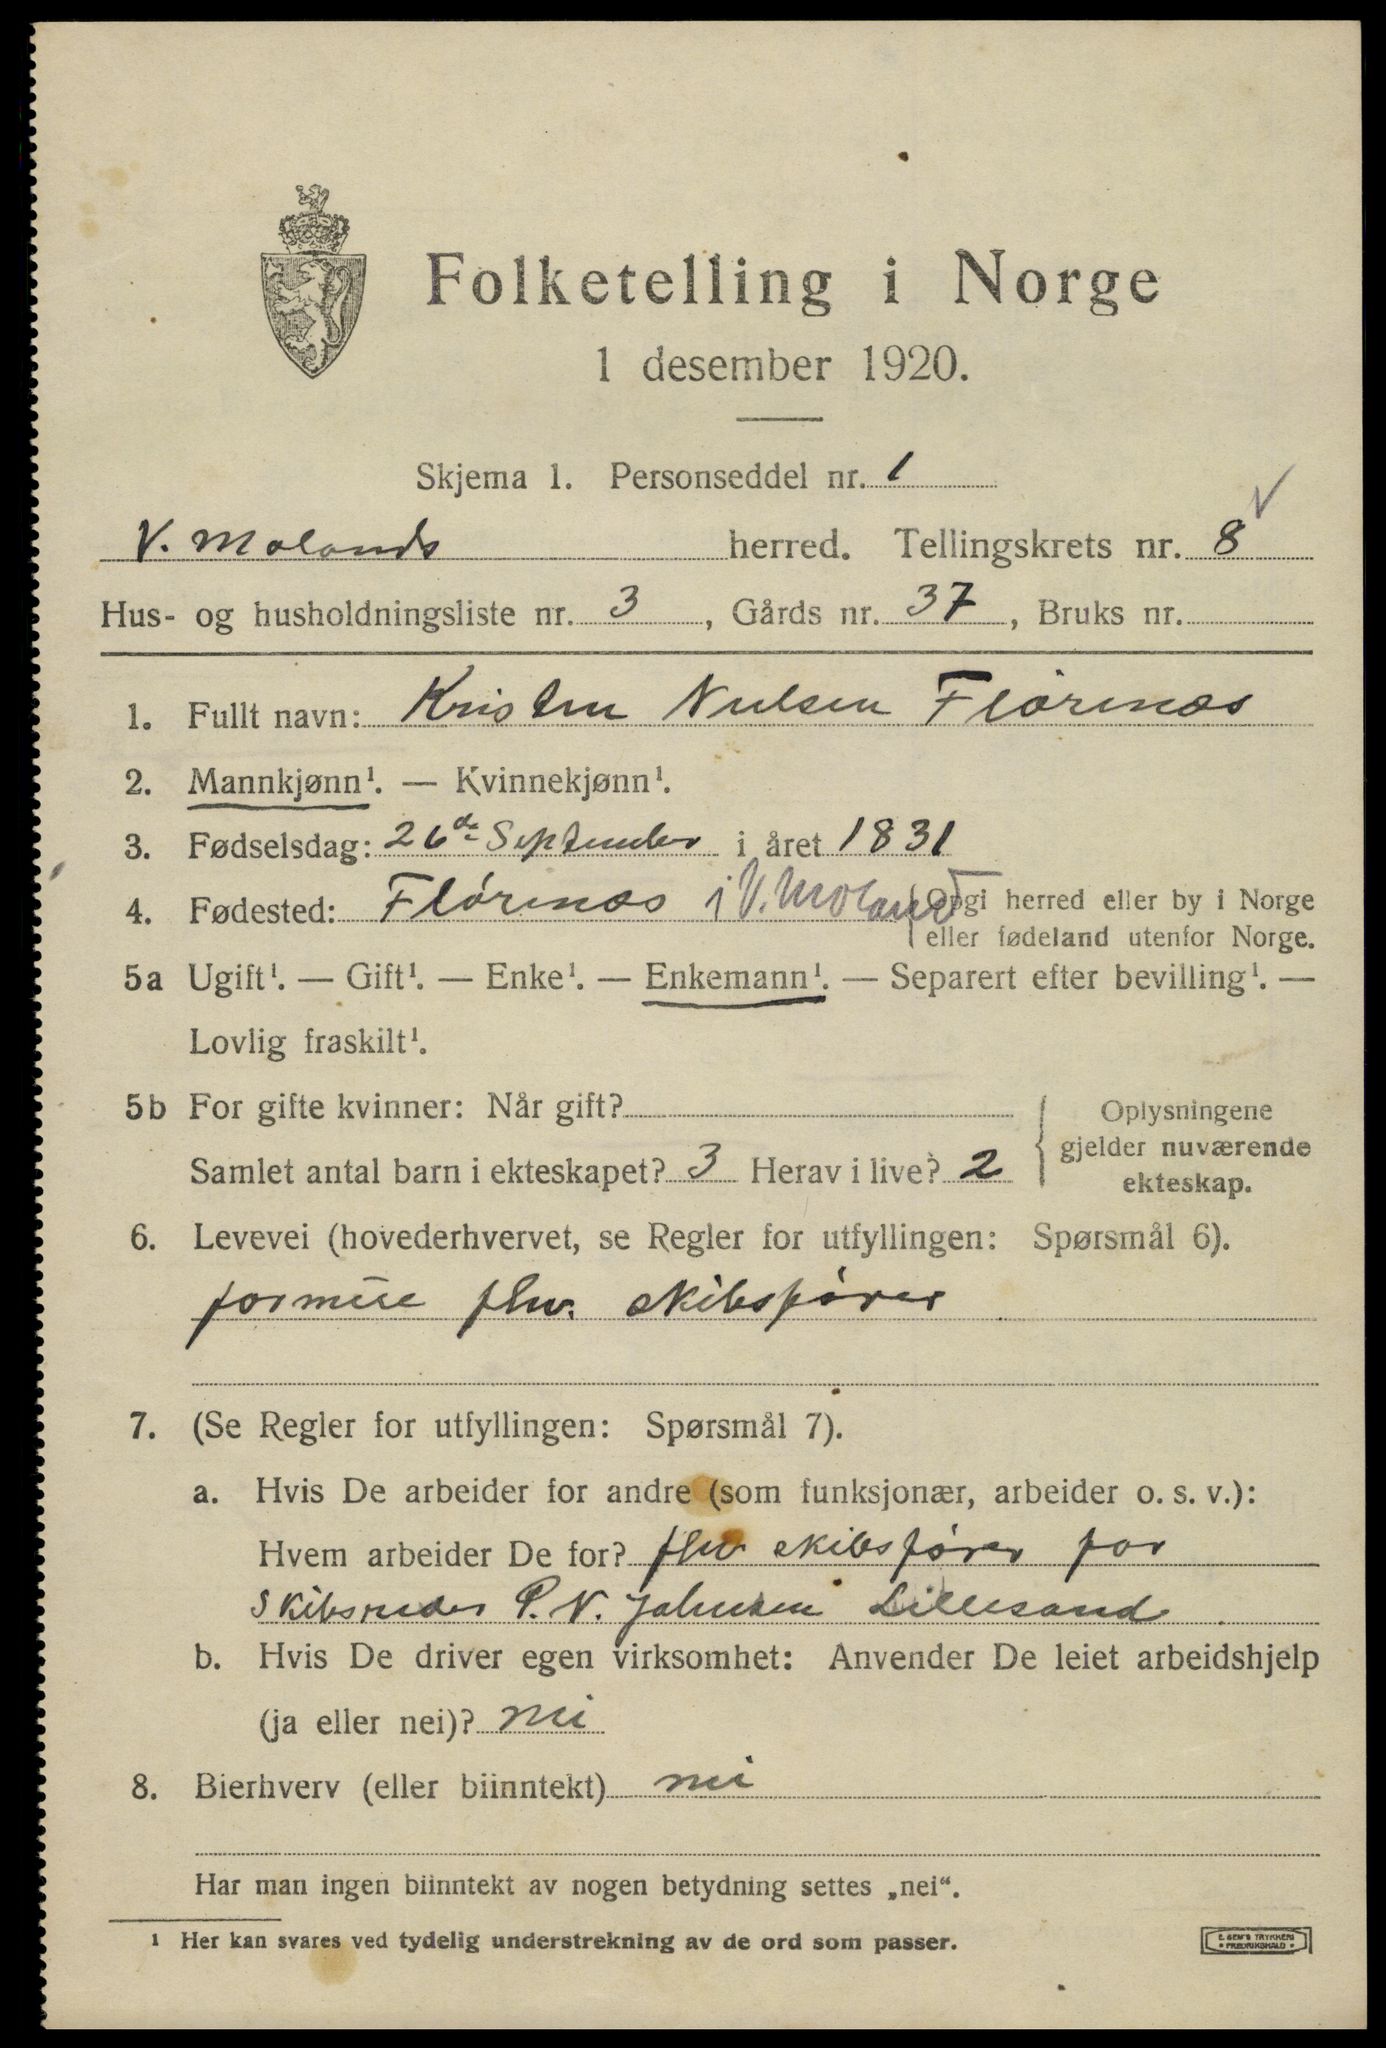 Folketelling i Norge
1 desember 1920.
Skjema 1. Personseddel nr. 1
V. Molands herred. Tellingskrets nr. 8
Hus- og husholdningsliste nr. 3, Gårds nr. 37, Bruks nr.
1. Fullt navn: Kristen Nielsen Flørenæs
2. Mannkjønn¹. — Kvinnekjønn¹.
3. Fødselsdag: 26de September i året 1831
4. Fødested: Flørenæs i V. Moland (Opgi herred eller by i Norge
eller fødeland utenfor Norge.
5a Ugift¹. — Gift¹. — Enke¹. — Enkemann¹. — Separert efter bevilling¹. —
Lovlig fraskilt¹.
5b For gifte kvinner: Når gift?
Samlet antal barn i ekteskapet? 3 Herav i live? 2
Oplysningene
gjelder nuværende
ekteskap.
6. Levevei (hovederhvervet, se Regler for utfyllingen: Spørsmål 6).
formue fhv. skibsfører
7. (Se Regler for utfyllingen: Spørsmål 7).
a. Hvis De arbeider for andre (som funksjonær, arbeider o. s. v.):
Hvem arbeider De for? fhv skibsfører for
Skibsreder P. N. Johnsen Lillesand
b. Hvis De driver egen virksomhet: Anvender De leiet arbeidshjelp
(ja eller nei)? nei
8. Bierhverv (eller biinntekt) nei
Har man ingen biinntekt av nogen betydning settes „nei“.
¹ Her kan svares ved tydelig understrekning av de ord som passer.
E. SEM'S TRYKKERI
• FREDRIKSHALD •